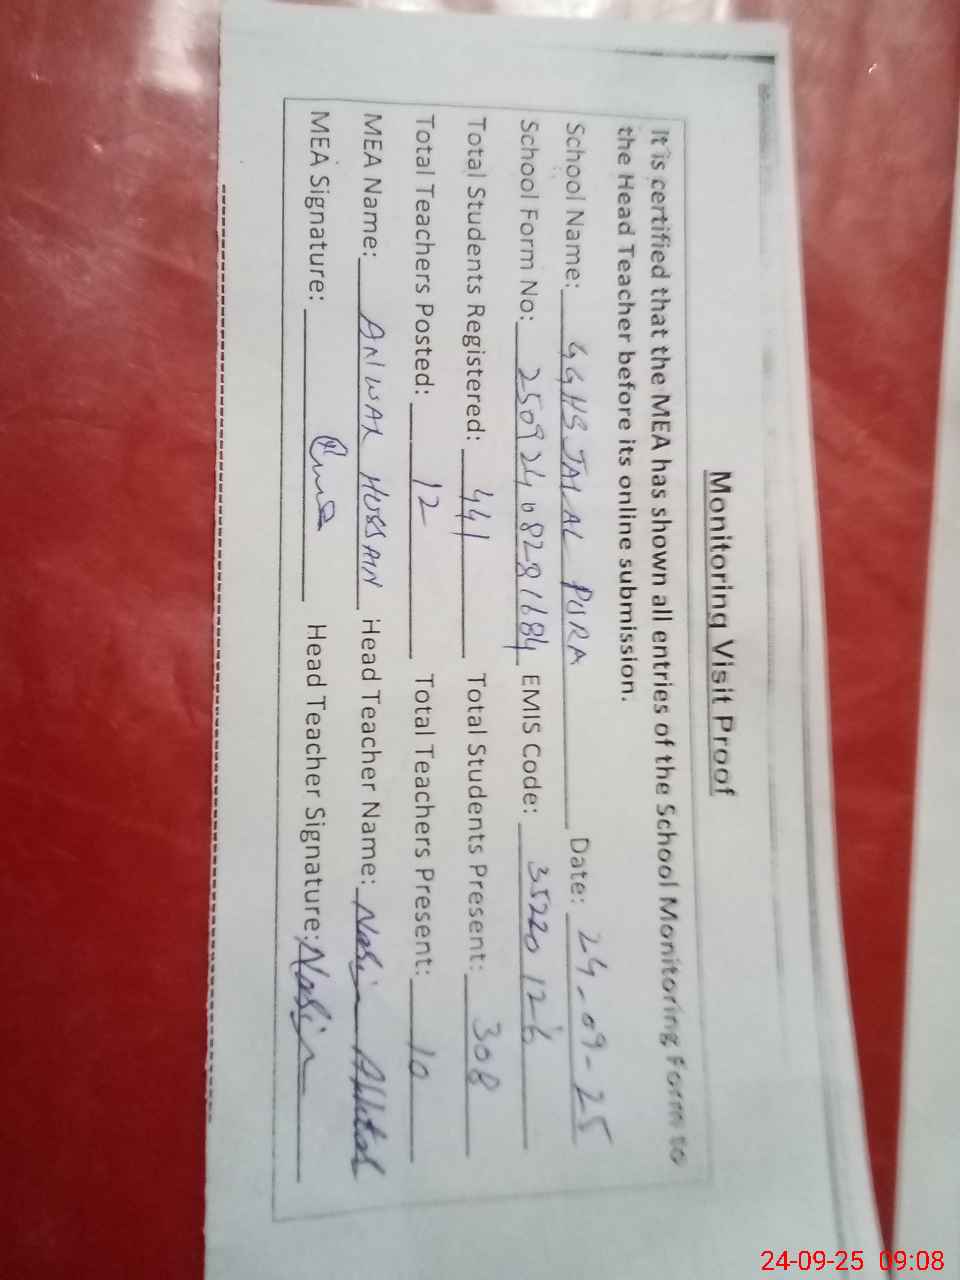 Monitoring Visit Proof
It is certified that the MEA has shown all entries of the School Monitoring Form to
the Head Teacher before its online submission.
School Name: GGHS JALAL PURA Date: 24-09-25
School Form No: 25092408281684 EMIS Code: 35220126
Total Students Registered: 441 Total Students Present: 308
Total Teachers Posted: 12 Total Teachers Present: 10
MEA Name: ANWAR HUSSAIN Head Teacher Name: Nasim Akhtar
MEA Signature: Head Teacher Signature: Nasim
24-09-25 09:08